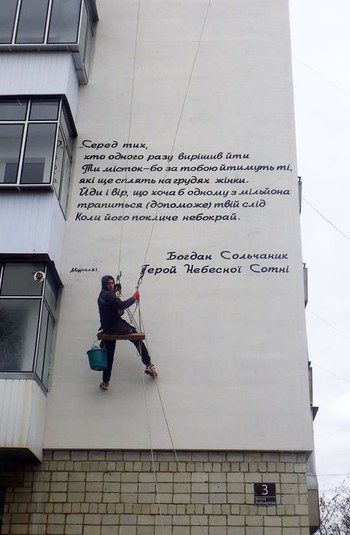 Серед тих,
хто одного разу вирішив йти
Ти місток—бо за тобою йтимуть ті,
які ще сплять на грудях жінки.
Йди і вір, що хоча б одному з мільйона
трапиться (допоможе) твій слід
Коли його покличе небокрай.
Богдан Сольчаник
Герой Небесної Сотні
3